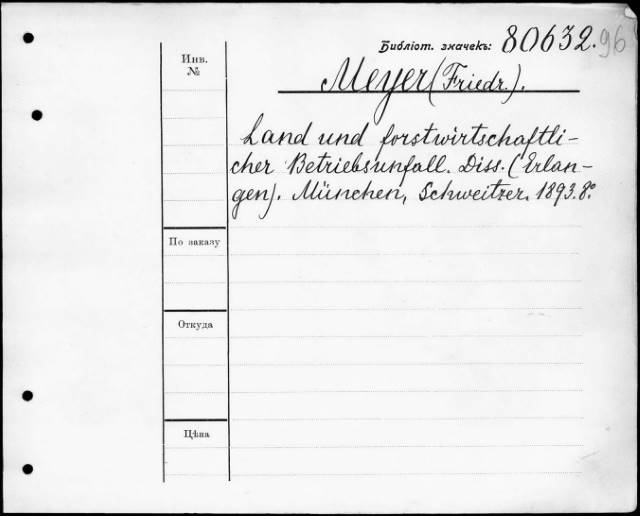 Библіот. значекъ: 80632.96
Инв. №
Meyer (Friedr.).
Land und forstwirtschaftli-
cher Betriebsunfall. Diss. (Erlan-
gen). München, Schweitzer. 1893. 8°.
По заказу
Откуда
Цѣна